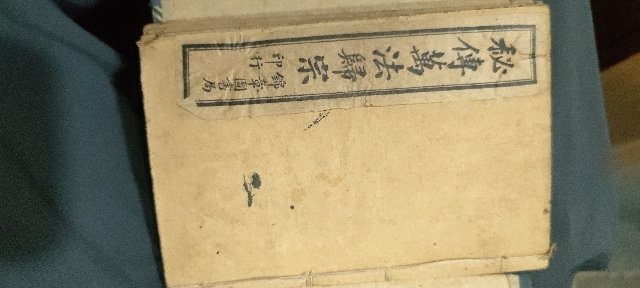 秘傳萬法歸宗
錦章圖書局
印行